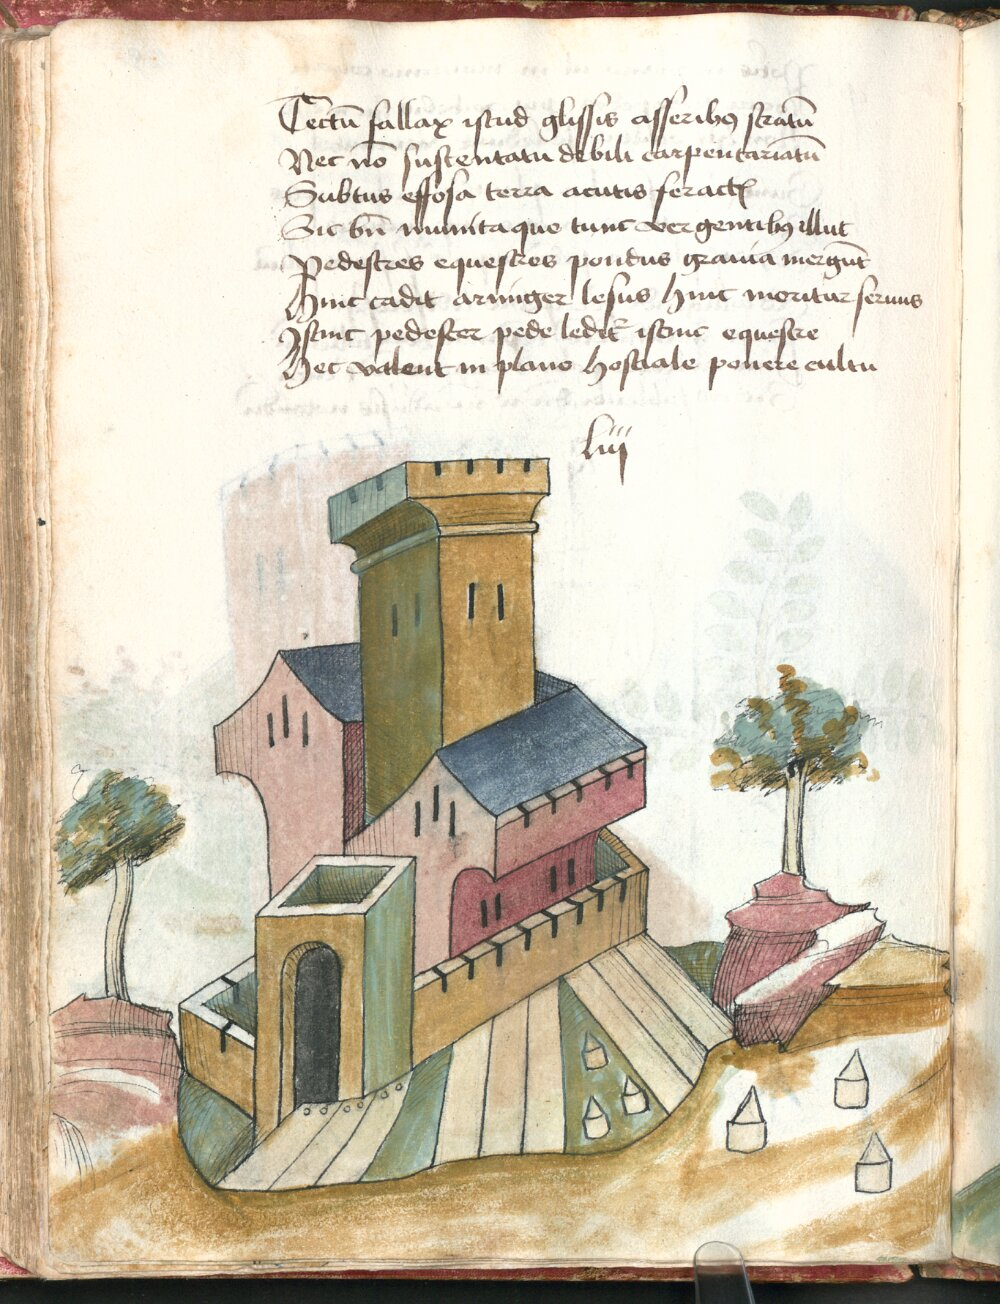 Tectū fallax istud glissis asseribꝯ stratū
Nec nō sustentatū debili carpentariatū
Subtus effosa terra acutis feractꝭ
Sic bn̄ munita que tunc vergentibꝯ illut
Pedestres equestres pondus grauia mergūt
Hinc cadit armiger lesus hinc moritur seruus
Istinc pedester pede ledit᷑ istinc equestre
Hec valent in plano hostiale ponere cultu
liij